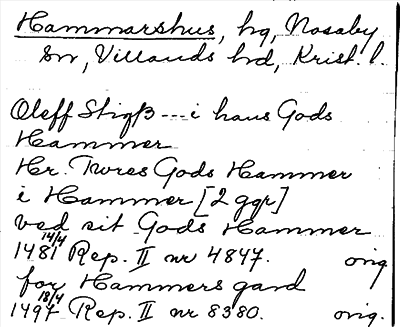 Hammarshus, hg, Nosaby
sn, Villands hd, Krist. l.
Oleff Stigß --- i hans Gods
Hammer
Hr. Twres Gods Hammer
i Hammer [2 ggr]
ved sit Gods Hammer
14/4
1481 Rep. II nr 4847. orig
for Hammers gard
18/4
1497 Rep. II nr 8380. orig.